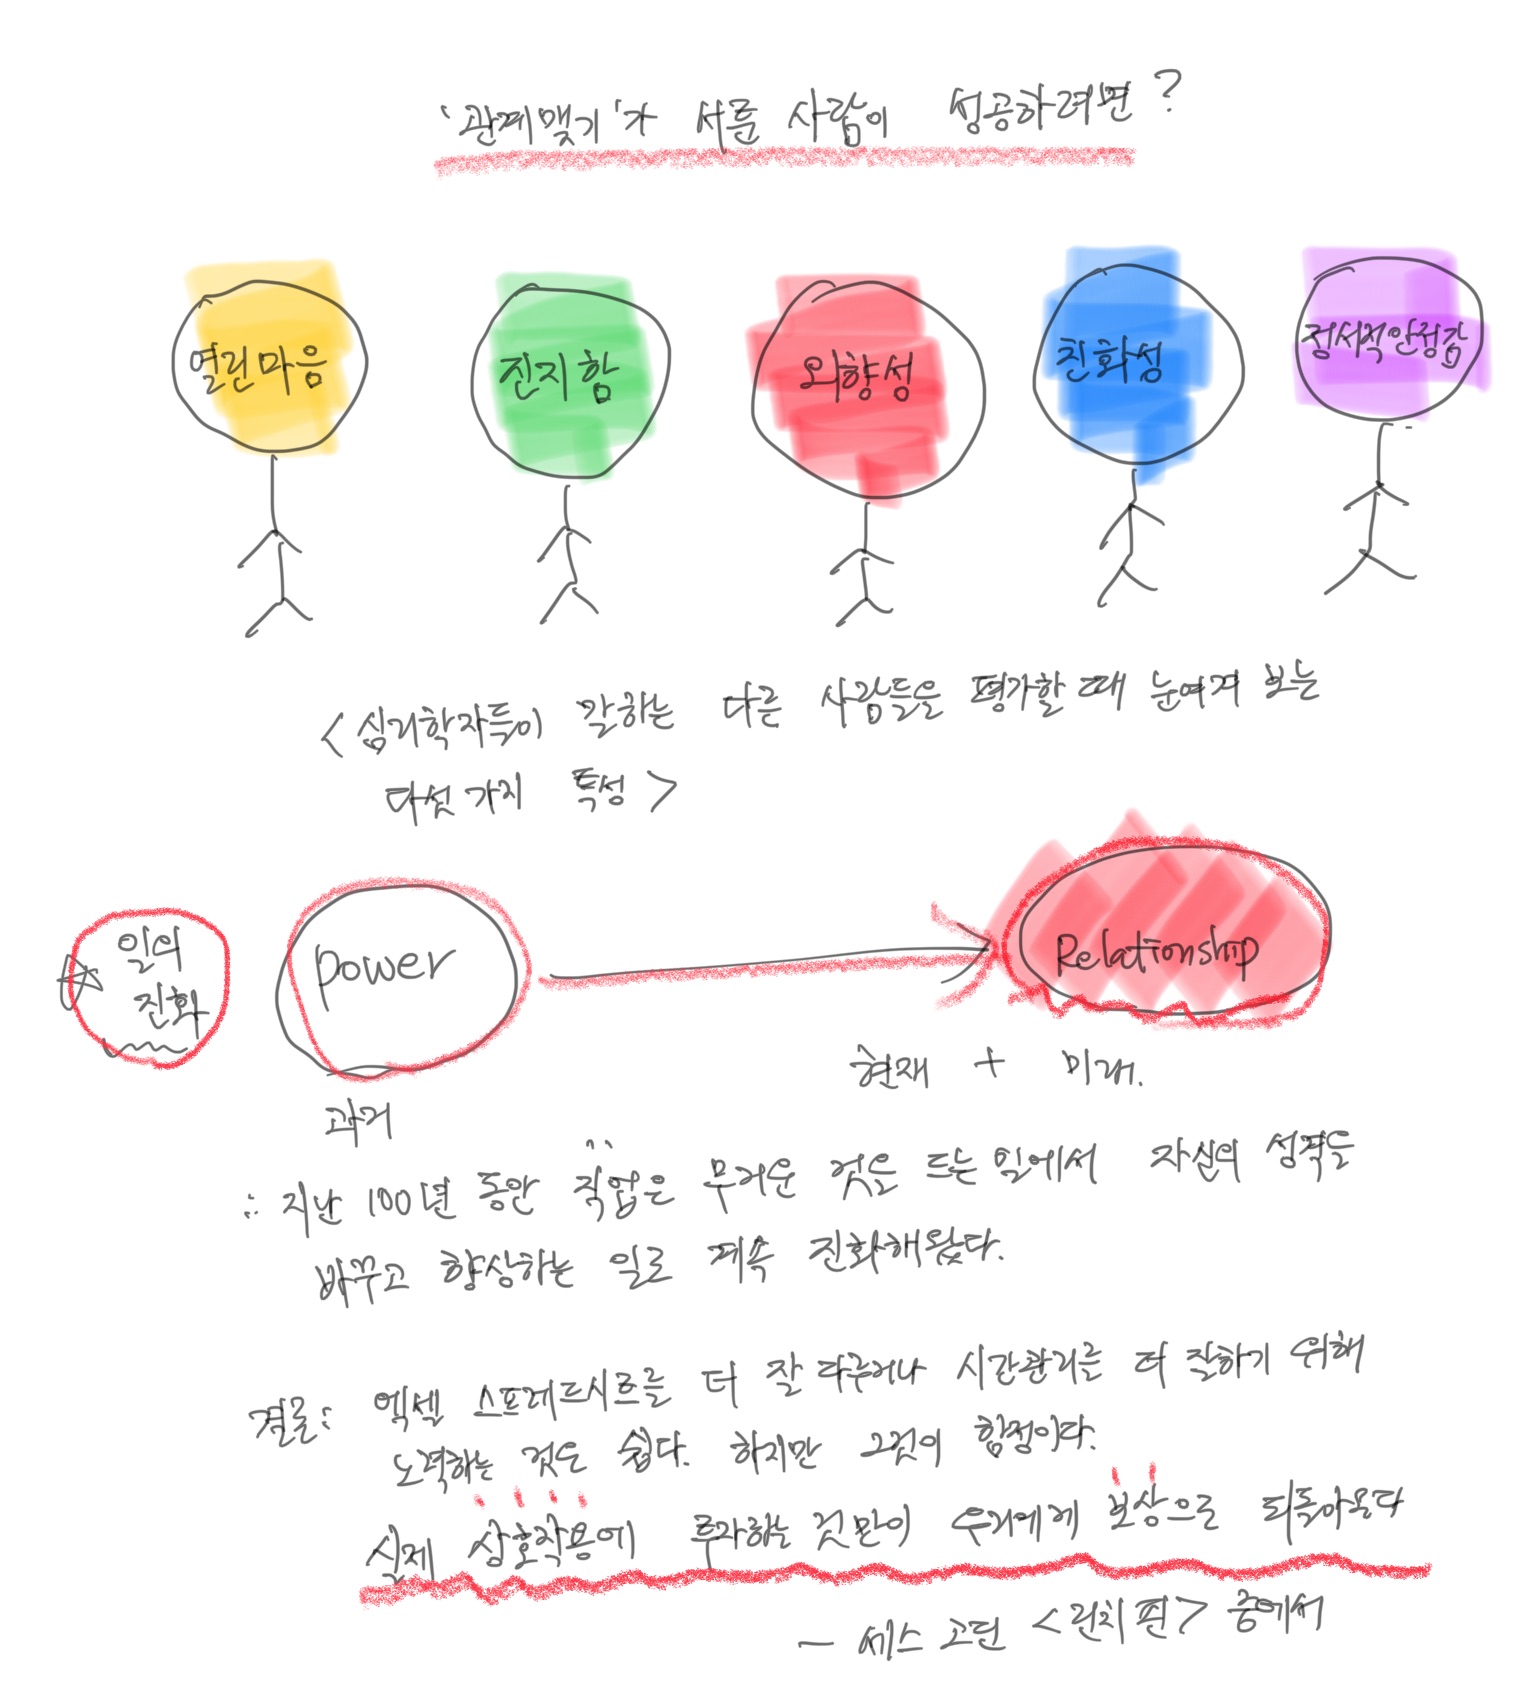 '관계맺기'가 서툰 사람이 성공하려면?
열린마음
진지함
외향성
친화성
정서적안정감
<심리학자들이 말하는 다른 사람들을 평가할 때 눈여겨 보는
다섯가지 특성>
일의
진화
power
Relationship
과거
현재 + 미래.
∴ 지난 100년 동안 직업은 무거운 것을 드는 일에서 자신의 성격을
바꾸고 향상하는 일로 계속 진화해왔다.
결론: 엑셀 스프레드시트를 더 잘 다루거나 시간관리를 더 잘하기 위해
노력하는 것은 쉽다. 하지만 그것이 함정이다.
실제 상호작용에 투자하는 것만이 우리에게 보상으로 되돌아온다
- 세스 고딘 <린치핀> 중에서